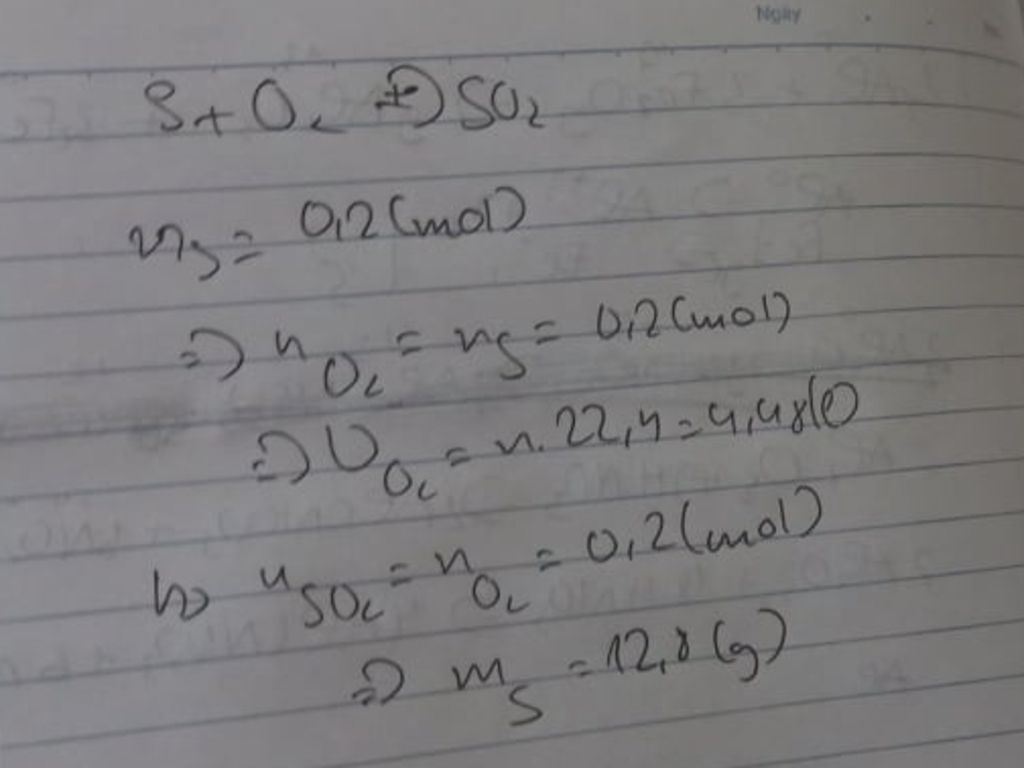 Ngày
S + O₂ → SO₂
nₛ = 0,2 (mol)
=> n O₂ = nS = 0,2 (mol)
=> V O₂ = n. 22,4 = 4,48 (l)
b) n SO₂ = n O₂ = 0,2 (mol)
=> m S = 12,8 (g)